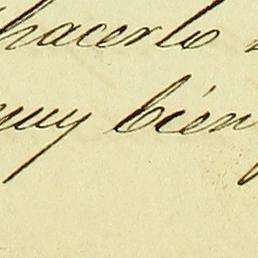 hacerlo
muy bién